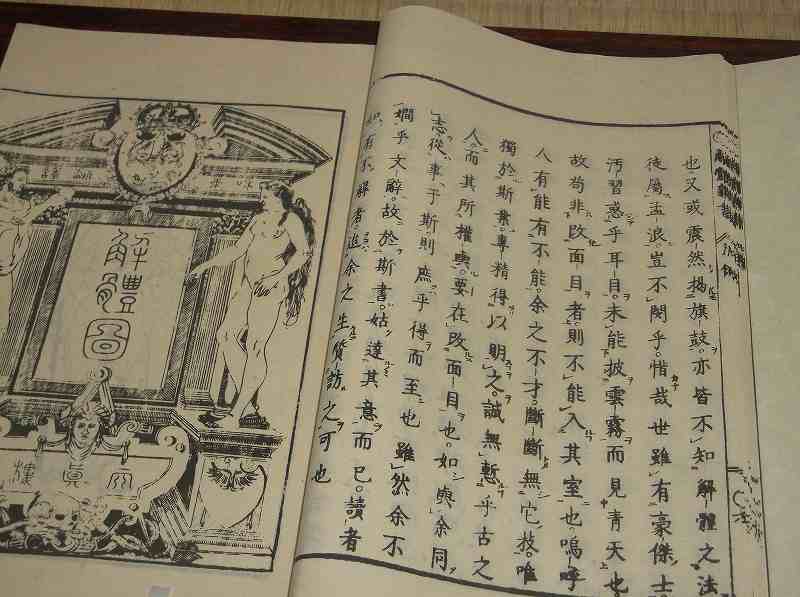 也又或震然揭旗鼓。亦皆不知解體之法
徒屬孟浪豈不閔乎。惜哉世雖有豪傑士
汚習惑乎耳目。未能披雲霧而見青天也
故苟非改面目者。則不能入其室也。嗚呼
人有能有不能。余之不才。斷斷無它技。唯
獨於斯業。專精得以明之。誠無慙乎古之
人。而其所權輿。要在改面目也。如與余同
志。從事于斯。則庶乎得而至也雖然余不
嫺乎文辭。故於斯書。姑達其意而已。讀者
有不解者。迨余之生質訪。之可也
解體圖
天眞樓